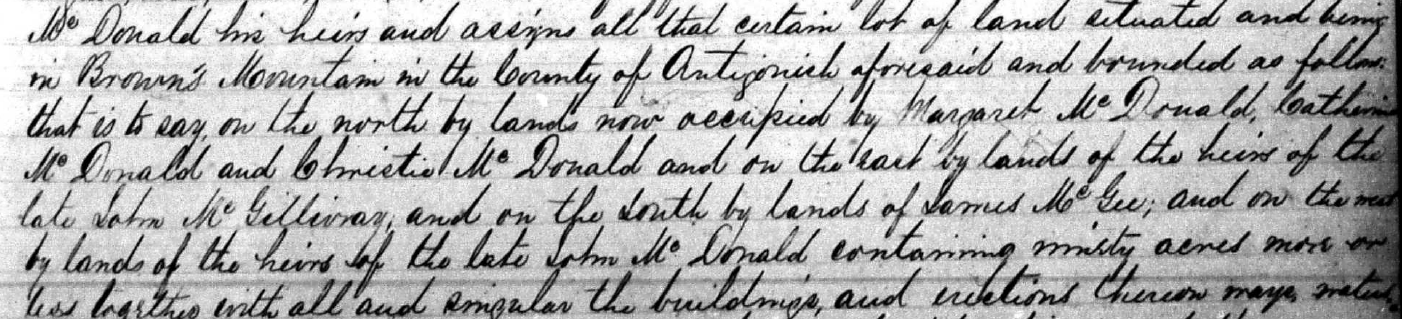 Mc Donald his heirs and assigns all that certain lot of land situated and being
in Brown's Mountain in the County of Antigonish aforesaid and bounded as follows:
that is to say, on the north by lands now occupied by Margaret Mc Donald, Catherine
Mc Donald and Christie Mc Donald and on the East by lands of the heirs of the
late John Mc Gillivray; and on the South by lands of James Mc Gee; and on the west
by lands of the heirs of the late John Mc Donald containing ninety acres more or
less together with all and singular the buildings, and erections thereon ways,